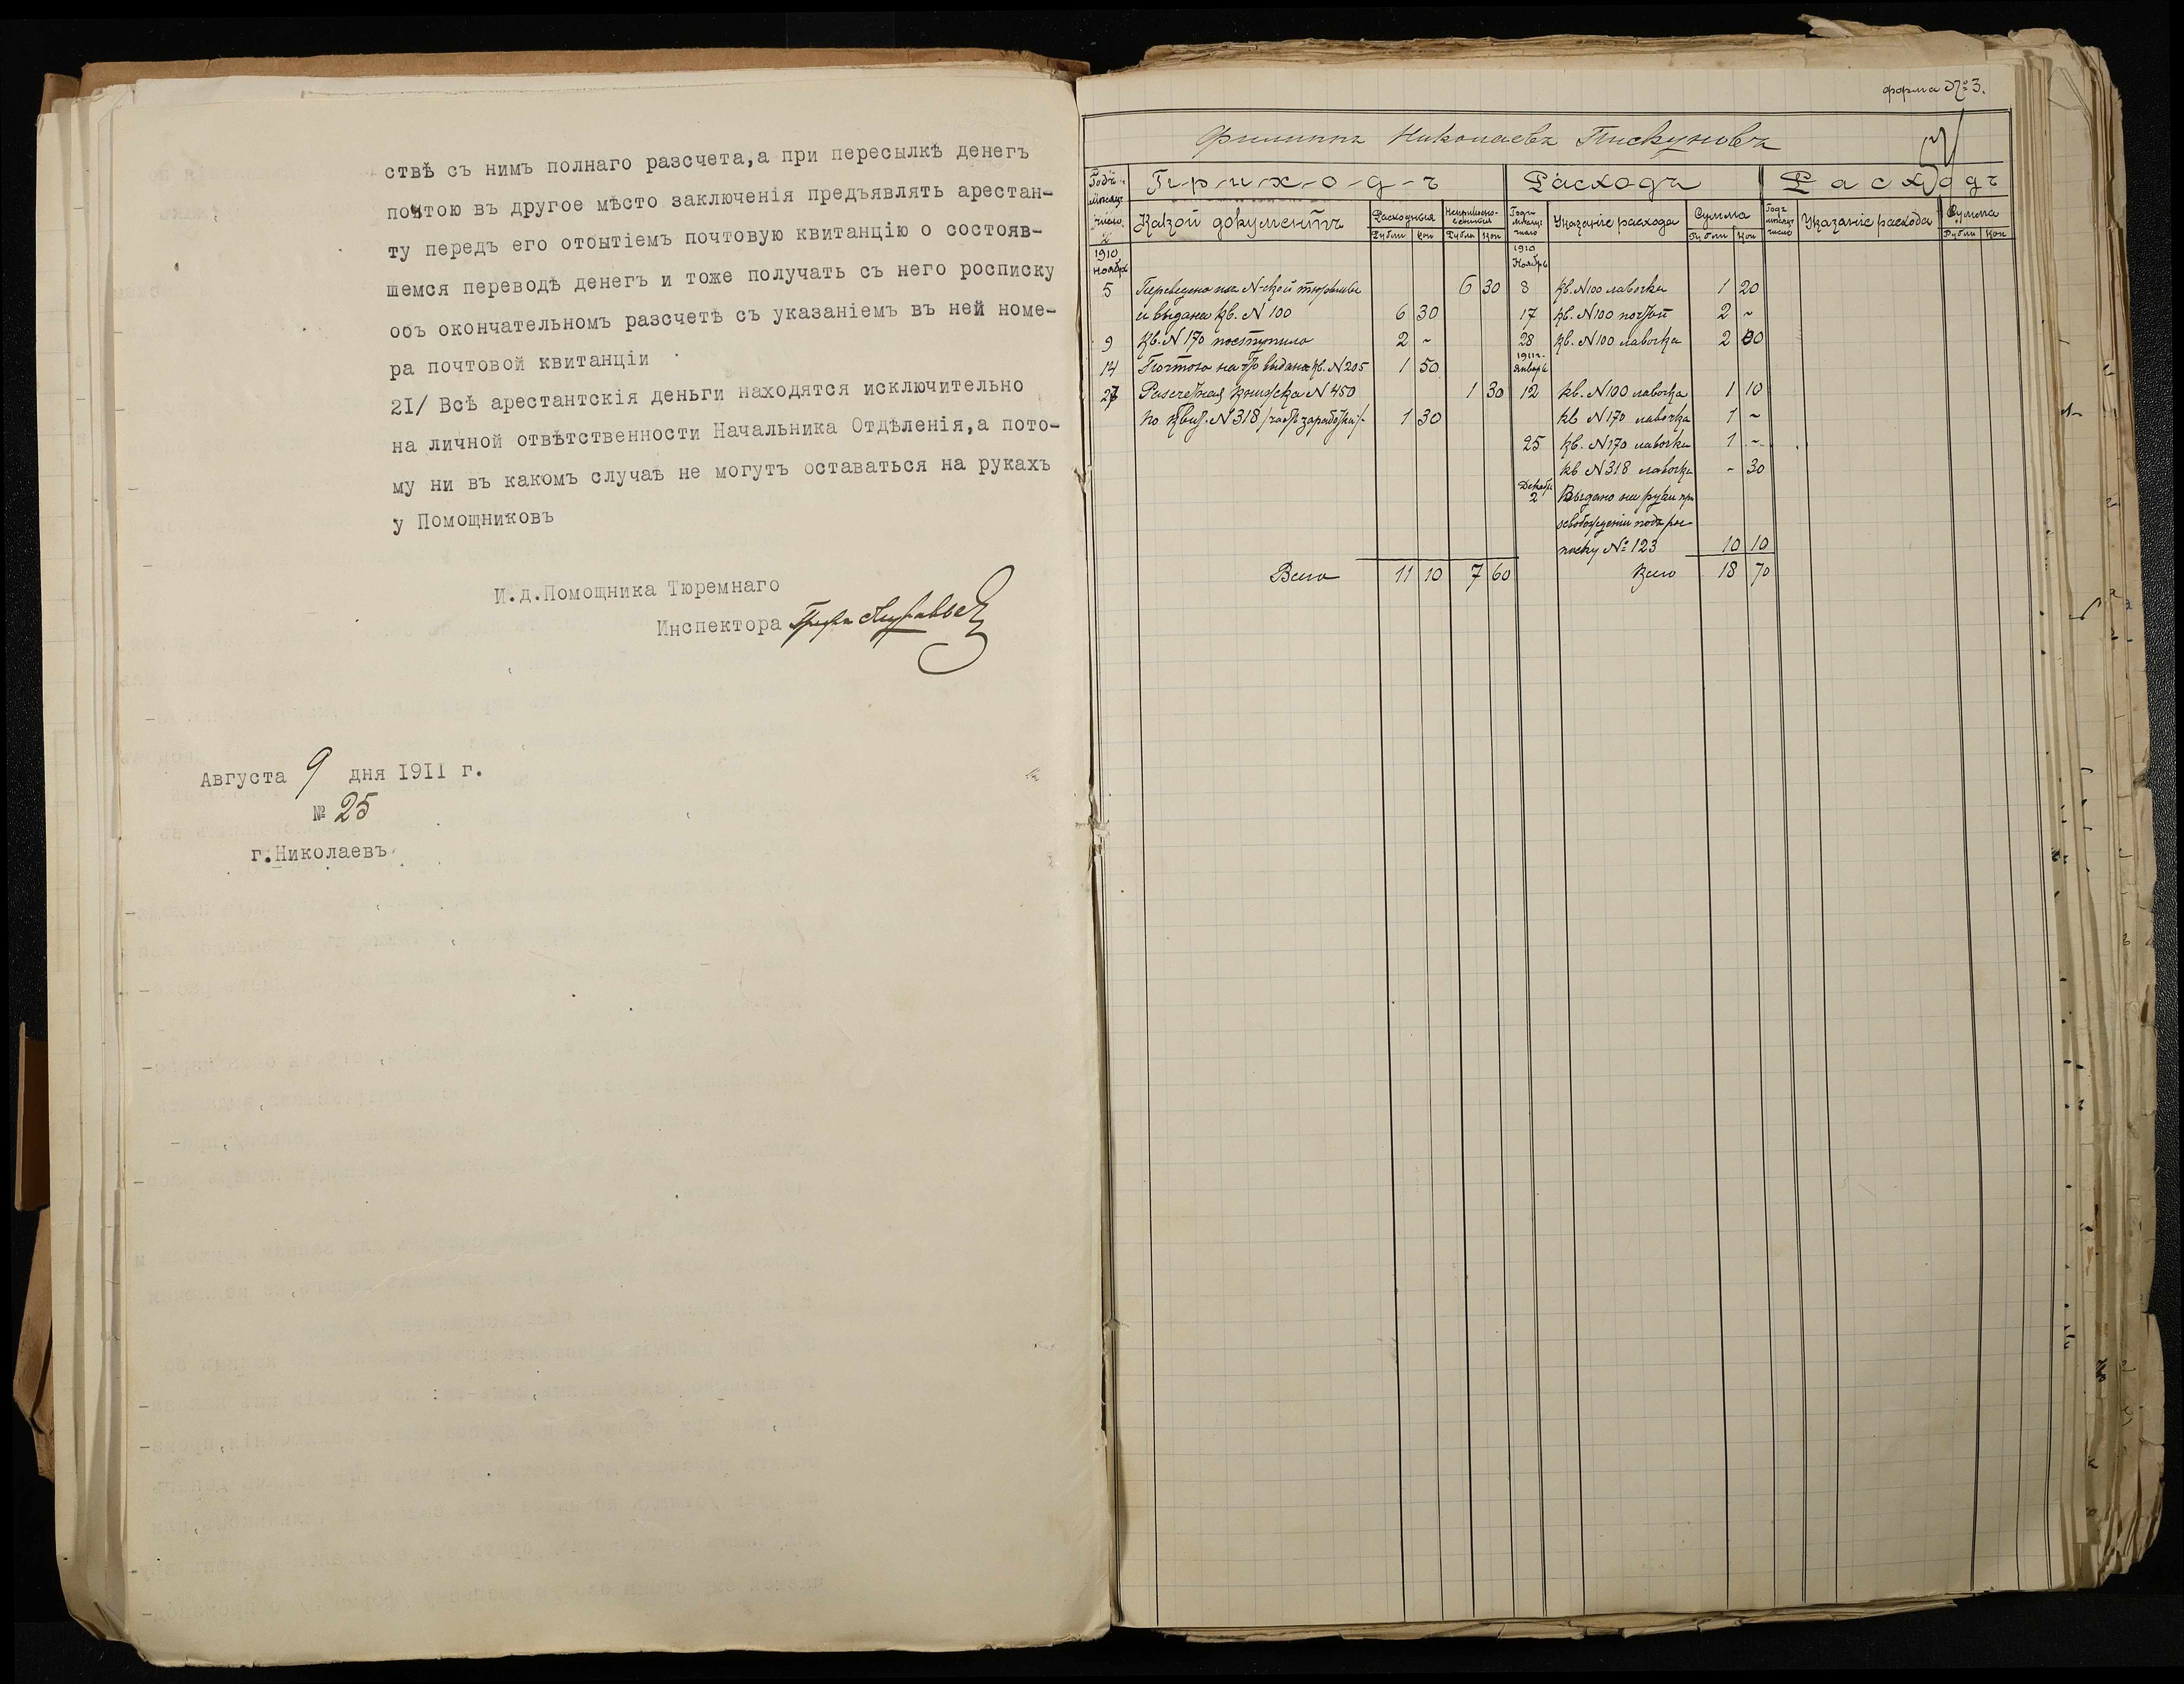 ствѣ съ нимъ полнаго разсчета,а при пересылкѣ денегъ
почтою въ другое мѣсто заключенія предъявлять арестан-
ту передъ его отбытіемъ почтовую квитанцію о состояв-
шемся переводѣ денегъ и тоже получать съ него росписку
объ окончательномъ разсчетѣ съ указаніемъ въ ней номе-
ра почтовой квитанціи
2I/ Всѣ арестантскія деньги находятся исключительно
на личной отвѣтственности Начальника Отдѣленія,а пото-
му ни въ какомъ случаѣ не могутъ оставаться на рукахъ
у Помощниковъ
И.д.Помощника Тюремнаго
Инспектора Графъ Муравьев
Августа 9 дня I9II г.
№ 25
г.Николаевъ
форма № 3.
Филиппъ Николаевъ Пискуновъ
Годъ мѣсяцъ число П-р-и-х-о-д-ъ Расходъ Р а с х о д ъ
Какой документъ Расходныя Неприкосно-венныя Годъ мѣсяцъ число Указаніе расхода Сумма Годъ мѣсяцъ число Указаніе расхода Сумма
Рубли Коп Рубли Коп Рубли Коп Рубли Коп
1910 Ноябрь 1910 Ноябрь
5 Переведено изъ N-ской тюрьмы 6 30 8 кв. N 100 лавочка 1 20
и выдана кв. N 100 6 30 17 кв. N 100 2 ~
9 кв. N 170 поступило 2 ~ 28 кв. N 100 лавочка 2 00
14 Почтою на выдана кв. N 205 1 50 1911 г. Январь
27 Разсчетная книжка N 450 1 30 12 кв. N 100 лавочка 1 10
по квит. N 318 /часть заработка/. 1 30 кв N 170 лавочка 1 ~
25 кв. N 170 лавочка 1 ~
кв N 318 лавочка - 30
Декабрь 2 Выдано на руки при
освобожденіи подъ рос-
писку № 123 10 10
Всего 11 10 7 60 Всего 18 70